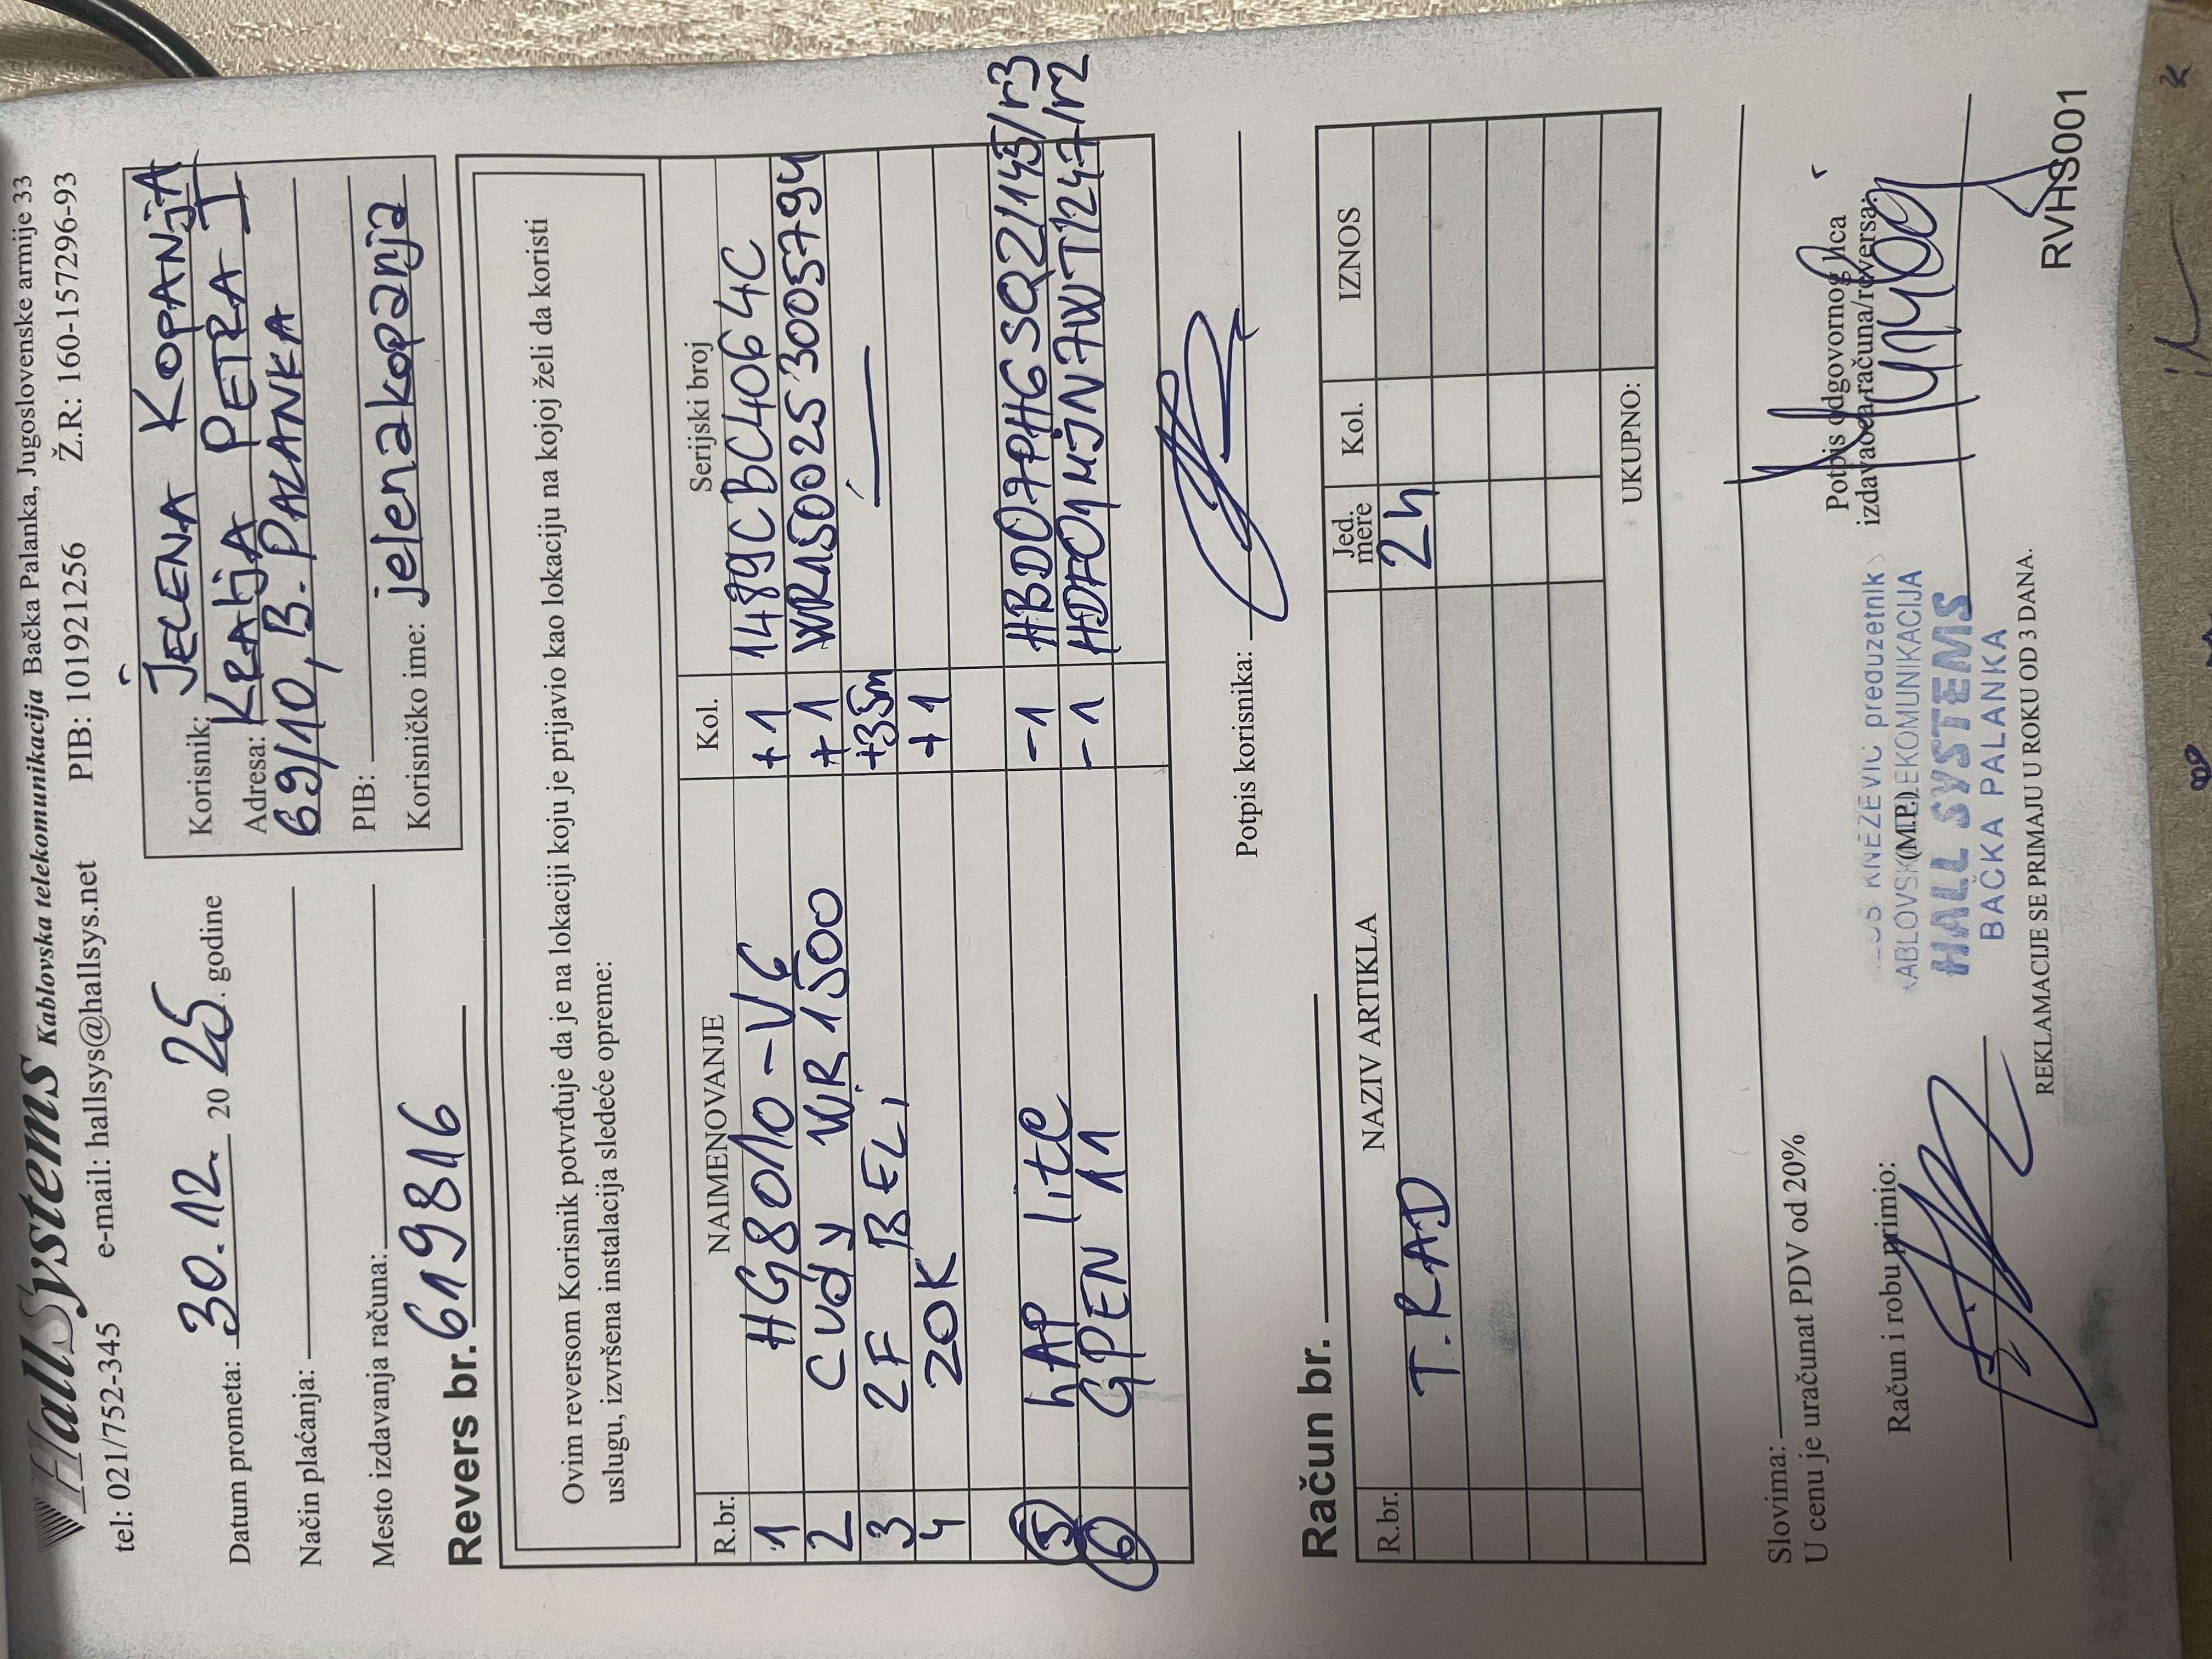 HallSystems Kablovska telekomunikacija Bačka Palanka, Jugoslovenske armije 33
tel: 021/752-345 e-mail: hallsys@hallsys.net PIB: 101921256 Ž.R: 160-157296-93
Datum prometa: 30.12. 2025. godine
Način plaćanja:
Mesto izdavanja računa:
Korisnik: JELENA KOPANjA
Adresa: KRALjA PETRA I
69/10, B. PALANKA
PIB:
Korisničko ime: jelenakopanja
Revers br. 619816
Ovim reversom Korisnik potvrđuje da je na lokaciji koju je prijavio kao lokaciju na kojoj želi da koristi
uslugu, izvršena instalacija sledeće opreme:
R.br. NAIMENOVANJE Kol. Serijski broj
1 HG8010-V6 +1 1489CBC4064C
2 Cudy WR1500 +1 WR15002553005794
3 2F BELI +35m
4 ZOK +1
5 hAP lite -1 HBD07PHGSQ2/145/r3
6 GPEN 11 -1 HDF01MJN7WT/247/r2
Potpis korisnika:
Račun br.
R.br. NAZIV ARTIKLA Jed. mere Kol. IZNOS
T. RAD 2h
UKUPNO:
Slovima:
U cenu je uračunat PDV od 20%
Račun i robu primio:
(M.P.)
KNEŽEVIĆ preduzetnik
HALL SYSTEMS
BAČKA PALANKA
Potpis odgovornog lica
izdavaoca računa/reversa:
REKLAMACIJE SE PRIMAJU U ROKU OD 3 DANA.
RVHS001